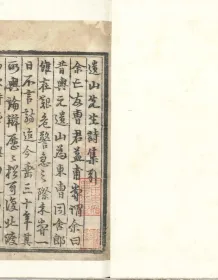 遺山先生詩集引
余亡友曹君益甫嘗謂余曰
昔與元遺山為東曹同舍郎
雖在艱危警急之際未嘗一
日不言詩迨今垂三十年其
所與論辯歷歷猶可復北渡